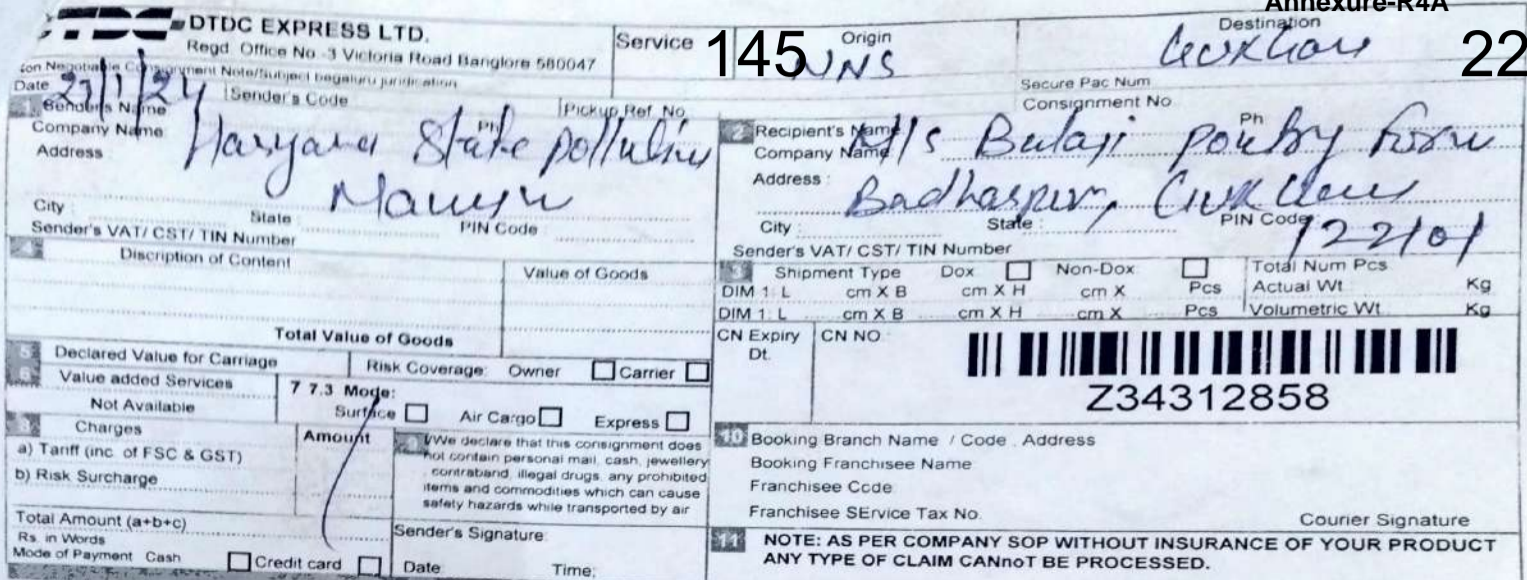 Annexure-R4A
DTDC EXPRESS LTD.
Regd. Office No -3 Victoria Road Banglore 580047
Non Negotiable Consignment Note/Subject begaluru juridication
Service
145
Origin
Destination
22
Secure Pac Num
Consignment No
Date 23/1/24
Sender's Code
Pickup Ref. No.
1 Sender's Name
Ph
Company Name
Haryana State pollution
Address :
City :
State
PIN Code :
Sender's VAT/ CST/ TIN Number
2 Recipient's Name
Ph
Company Name
M/s Balaji poultry Farm
Address :
Badhaspur,
City :
State :
PIN Code:
Sender's VAT/ CST/ TIN Number
3 Shipment Type Dox Non-Dox
Total Num Pcs
DIM 1: L cm X B cm X H cm X Pcs
Actual Wt Kg
DIM 1: L cm X B cm X H cm X Pcs
Volumetric Wt Kg
4 Discription of Content
Value of Goods
Total Value of Goods
5 Declared Value for Carriage
Risk Coverage: Owner Carrier
6 Value added Services
Not Available
7 7.3 Mode:
Surface Air Cargo Express
CN Expiry
Dt.
CN NO.
Z34312858
8 Charges
Amount
a) Tariff (inc. of FSC & GST)
b) Risk Surcharge
Total Amount (a+b+c)
Rs. in Words
Mode of Payment Cash Credit card
9 I/We declare that this consignment does
not contain personal mail, cash, jewellery
contraband, illegal drugs, any prohibited
items and commodities which can cause
safety hazards while transported by air
Sender's Signature:
Date: Time:
10 Booking Branch Name / Code . Address
Booking Franchisee Name
Franchisee Ccde
Franchisee SErvice Tax No.
Courier Signature
11 NOTE: AS PER COMPANY SOP WITHOUT INSURANCE OF YOUR PRODUCT
ANY TYPE OF CLAIM CANnoT BE PROCESSED.